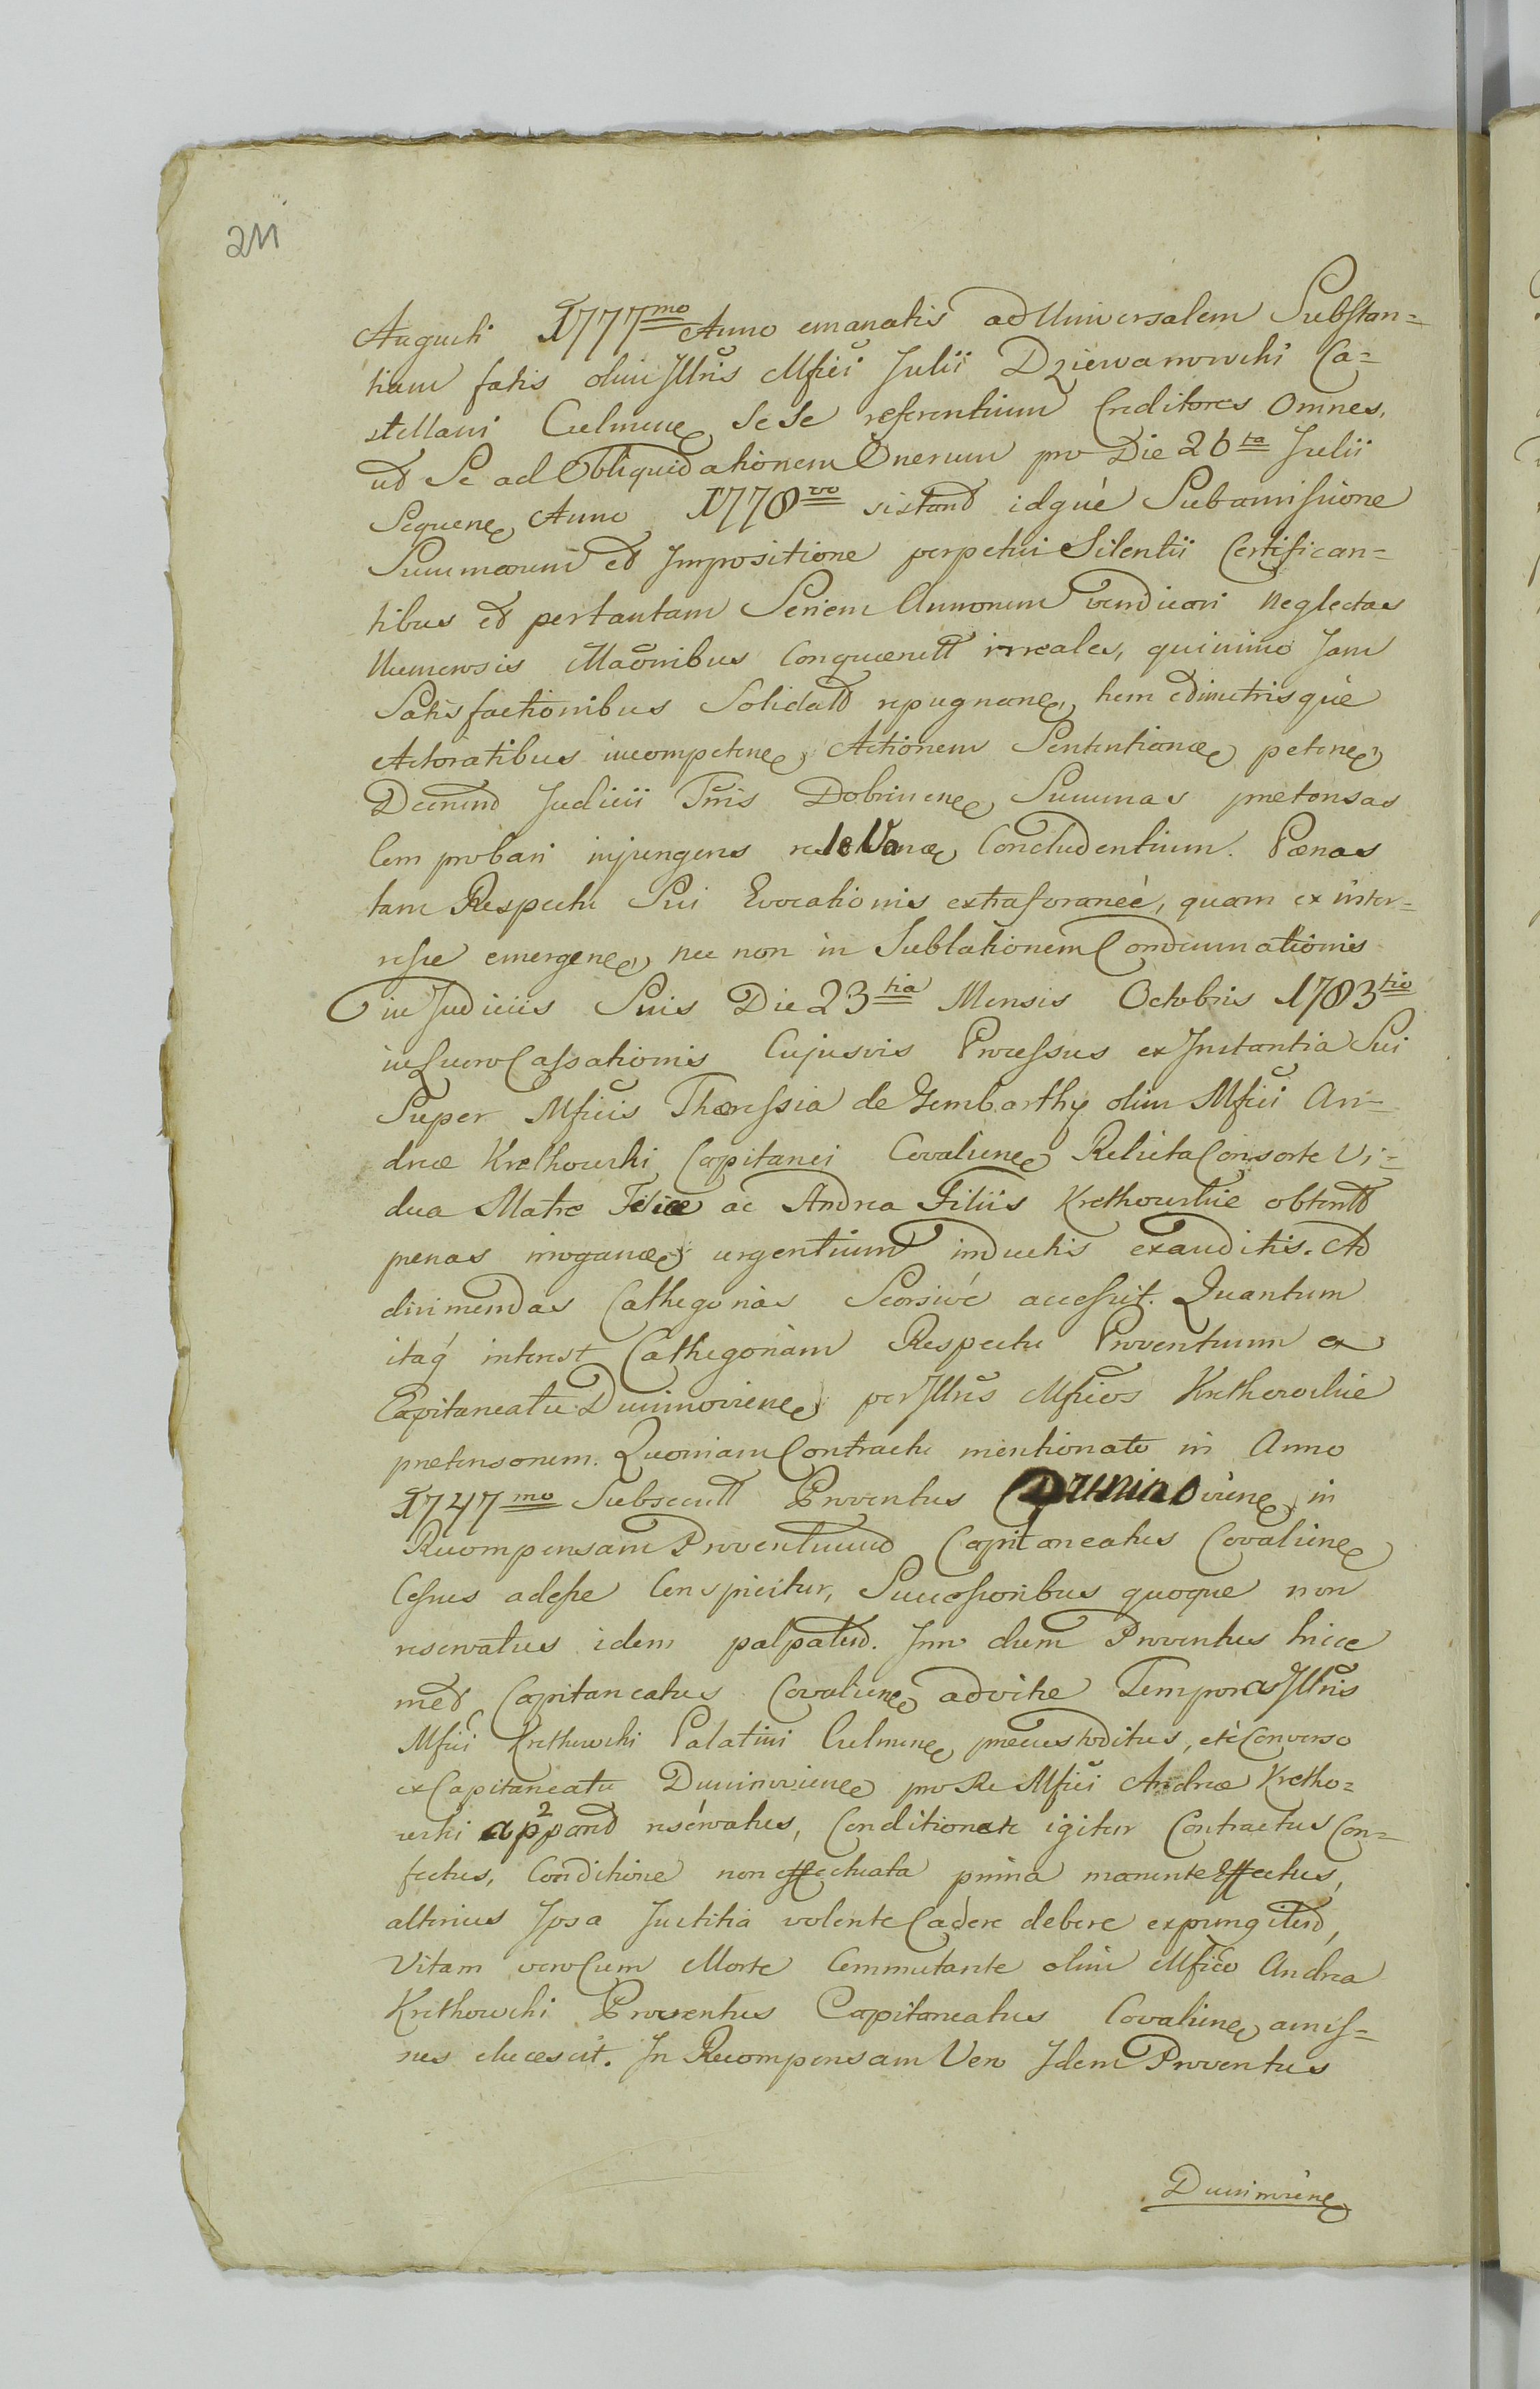 211
Augusti 1777mo Anno emanatis ad Universalem Substan=
tiam fatis olim Illris Mfici Julii Dziewanowski Ca=
stellani Culmen Sese referentium Creditores Omnes,
ut Se ad Obliquidationem Onerum pro Die 26ta Julii
Sequen Anno 1778vo sistant idque Sub amissione
Summarum et Impositione perpetui Silentii Certifican=
tibus et per tantam Seriem Annorum vendicari neglectas
Numerosis conquaeritt irreales, quinimo Jam
Satisfactionibus Solidatt repugnan, tum
Actoratibus incompeten, Actionem peten
Judicii Trris Dobrinen Summas pretensas
Comprobari injungens relevan Concludentium. Paenas
tam Respectu Sui Evocationis extraforaneè, quam ex inter=
esse emergen, nec non in Sublationem Condemnationis
in Judiciis Suis Die 23tia Mensis Octobris 1783tio
in Cassationis Cujusvis Processus ex Instantia Sui
Super Mficis Theressia de Gembarthy olim Mfici An=
dreae Krethowski Capitanei Covalien Relicta Consorte Vi=
dua Matre ac Andrea Filiis Krethowskie obtentt
penas irrogan urgentium inductis exauditis. Ad
dirimendas Cathegorias Seorsivé accessit. Quantum
itaq interest Cathegoriam Respectu Proventuum ex
Capitaneatu Duninovien per Illres Mficos Krethowskie
pretensorum. Quoniam Contractu mentionato in Anno
1747mo Subsecutt Proventus Duninovien in
Recompensam Proventuum Capitaneatus Covalien
Cessus adesse Conspicitur, Successoribus quoque non
reservatus idem palpatur. Imo dum Proventus hicce
met Capitaneatus Covalien ad vitae Tempora Illris
Mfici Krethowski Palatini Culmen precustoditus, et è Converso
ex Capitaneatu Duninovien pro Re Mfici Andreae Kretho=
wski reservatus, Conditionate igitur Contractus Con=
fectus, Conditione non effectuata prima manente Effectus,
alterius Ipsa Justitia volente Cadere debere expungitur,
Vitam vero Cum Morte Commutante olim Mfico Andrea
Krethowski Proventus Capitaneatus Covalien amis=
sus elucescit. In Recompensam Vero Idem Proventus
Duninovien